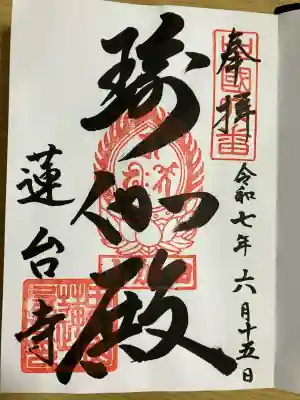 奉拝
令和七年六月十五日
瑜伽殿
蓮台寺